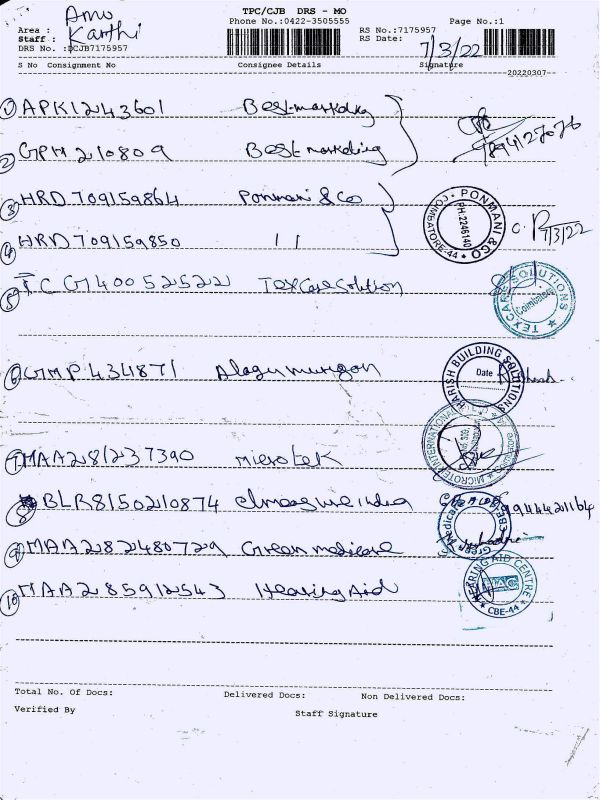 TPC/CJB DRS - MO
Phone No.:0422-3505555 Page No.:1
Area : Amu
Staff : Karthi
DRS No. :DCJB7175957
RS No.:7175957
RS Date: 7/3/22
S No Consignment No Consignee Details Signature
20220307
1 APK1243601 Best marketing
2 GPM 210809 Best marketing
3 HRD 709159864 Ponmani & Co
4 HRD 709159850 11
PONMANI & CO COIMBATORE-44 PH:2246140
7/3/22
5 TCG140052522 Texcare Solution
TEXCARE SOLUTIONS Coimbatore
6 GMP 434871 Alagumurugan
HARISH BUILDING SOLUTIONS Date
7 MAA281237390 microtek
MICROTEK INTERNATIONAL
8 BLR8150210874
9944421164
9 MAA282480729 Green medicare
Green Medicare
10 MAA285912543 Hearing Aid
HEARING AID CENTRE CBE-44
Total No. Of Docs: Delivered Docs: Non Delivered Docs:
Verified By Staff Signature